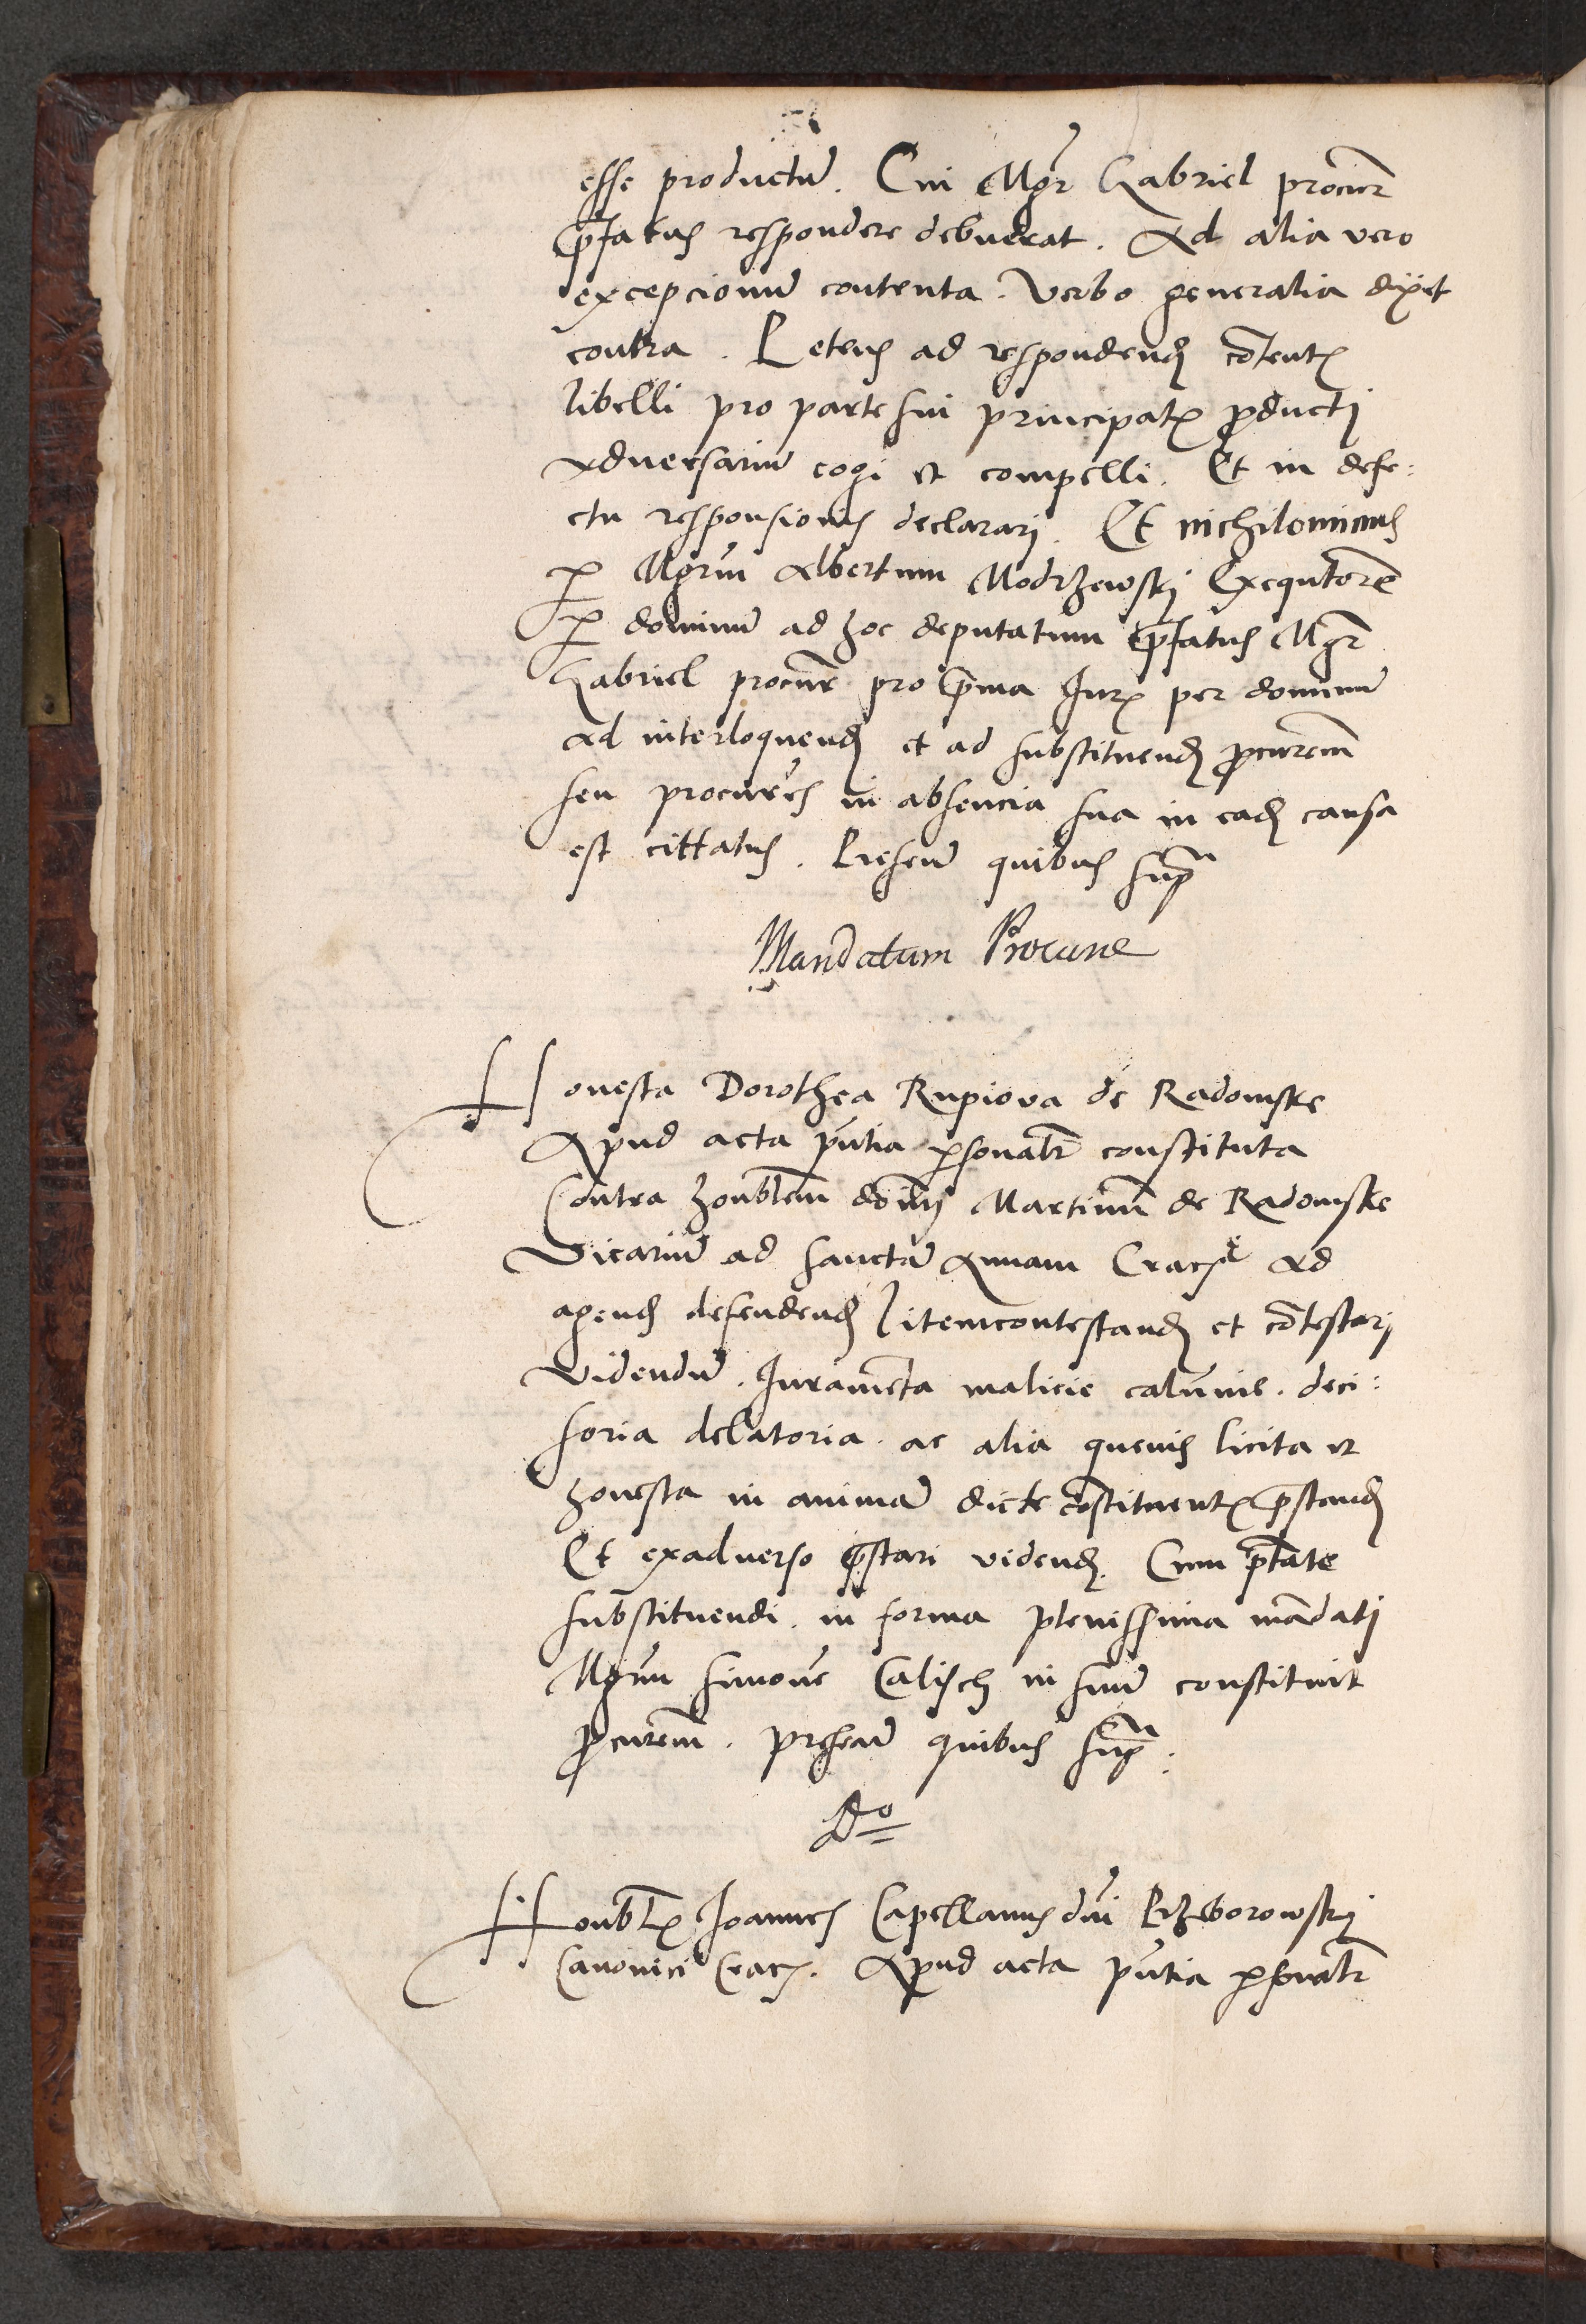 esse productu̅. Cui Mgr Gabriel procur̅
p̅fatus respondere debuerat. Ad alia vero
excepcionu̅ contenta. Verbo generalia dixit
contra. Petens ad respondend̅ co̅tent̅
libelli pro parte sui principal̅ producti
Adversariu̅ cogi et compelli. Et in defe:
ctu responsionis declarari. Et nichilominus
p̱ Mgru̅m Albertum Modrzewskj Exequtore̅
p̱ dominu̅ ad hoc deputatum p̅fatus Mgr̅
Gabriel procur̅ pro p̅ma Jur̅ per dominu̅
Ad interloquend̅ et ad substituend̅ ꝓcurem̅
seu procures̅ in absencia sua in ead̅ causa
est cittatus. Presen̅ quibus sup̅a
Mandatum Procur̅e
Honesta Dorothea Rupiova de Radomske
Apud acta pn̅tia ꝑsonalr̅ constituta
Contra honbl̅em do̅m̅ Martinu̅ de Radomske
Vicariu̅ ad sancta̅ Annam Craco̅e Ad
agend̅ defendend̅ litemcontestand̅ et co̅testari
Videndu̅. Jurame̅ta malicie calu̅nie. deci:
soria delatoria. ac alia quevis licita et
honesta in anima̅ dicte co̅stituent̅ p̅stand̅
Et exadverso p̅stari vidend̅. Cum p̅tate
substituendi. in forma plenissima ma̅datj
Mgru̅m Simone̅ Calisch̅ in suu̅ constituit
ꝓcurem̅. presen̅ quibus sup̅a.
A̅d̅o
Honbl̅ Joannes Capellanus dn̅i Przeborowskj
Canonici Crac̅. Apud acta pn̅tia ꝑsonalr̅